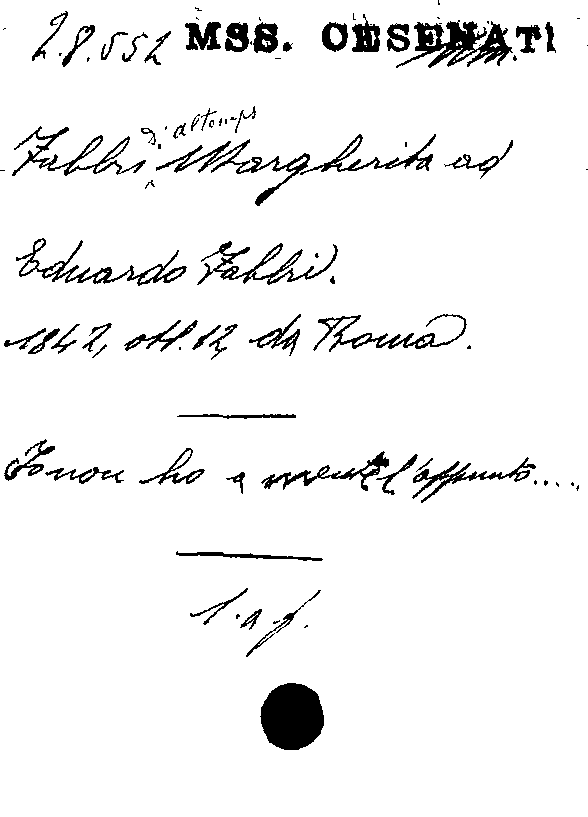 2.8.552 MSS. CESENATI
d'altemps
Fabbri Margherita ad
Eduardo Fabbri.
1842, ott. 12, da Roma.
Io non ho a mente l'appunto.....
l. a f.